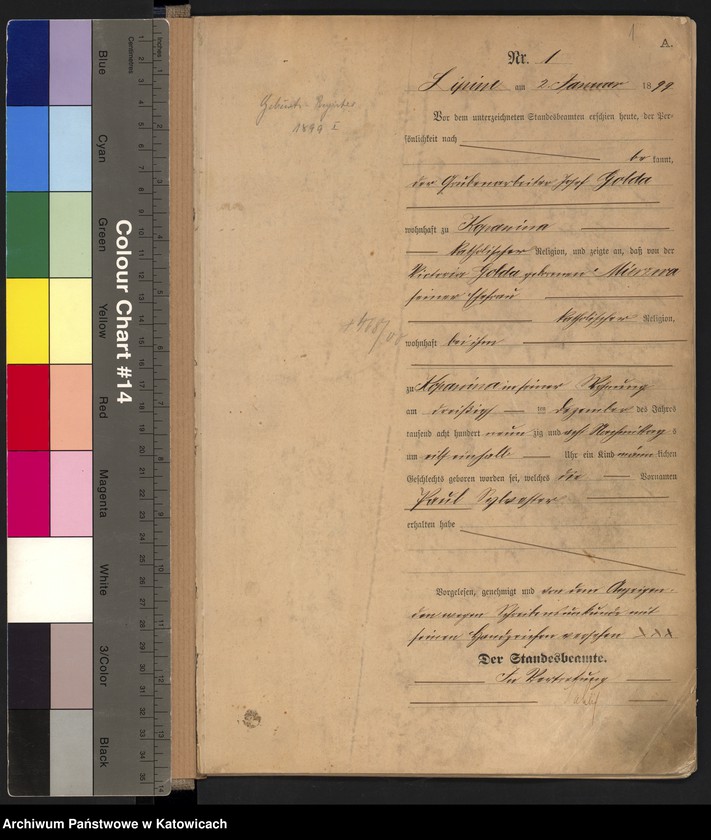 1
A.
Nr. 1
Lipine am 2. Januar 1899
Vor dem unterzeichneten Standesbeamten erschien heute, der Per-
sönlichkeit nach
be kannt,
der Grubenarbeiter Josef Golda
wohnhaft zu Kopanina
katholischer Religion, und zeigte an, daß von der
Victoria Golda geborenen
seiner Ehefrau
katholischer Religion,
wohnhaft bei ihm
zu Kopanina in seiner Wohnung
am dreißig ten Dezember des Jahres
tausend acht hundert neun zig und acht Nachmittag s
um elf einhalb Uhr ein Kind männ lichen
Geschlechts geboren worden sei, welches die Vornamen
Paul Sylvester
erhalten habe
Vorgelesen, genehmigt und von dem Anzeigen-
den wegen Schreibensunkunde mit
seinen Handzeichen versehen XXX
Der Standesbeamte.
In Vertretung
Geburts-Register
1899 I
Colour Chart #14
Blue
Cyan
Green
Yellow
Red
Magenta
White
3/Color
Black
Centimetres
Inches
Archiwum Państwowe w Katowicach